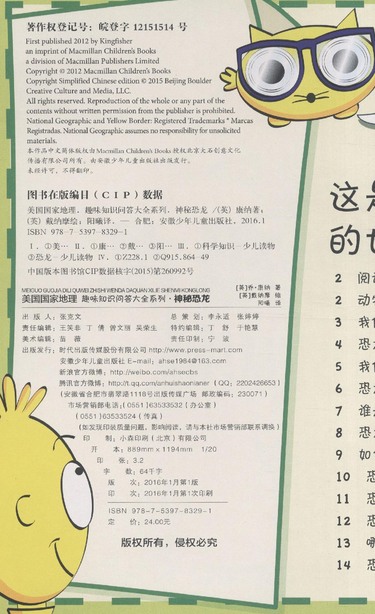 著作权登记号：皖登字 12151514 号
First published 2012 by Kingfisher
an imprint of Macmillan Children's Books
a division of Macmillan Publishers Limited
Copyright © 2012 Macmillan Children's Books
Copyright Simplified Chinese edition © 2015 Beijing Boulder
Creative Culture and Media, LLC.
All rights reserved. Reproduction of the whole or any part of the
contents without written permission from the publisher is prohibited.
National Geographic and Yellow Border: Registered Trademarks ® Marcas
Registradas. National Geographic assumes no responsibility for unsolicited
materials.
本作品中文简体版权由 Macmillan Children's Books 授权北京大石创意文化
传播有限公司所有，由安徽少年儿童出版社出版发行。
未经许可，不得翻印。
图书在版编目（CIP）数据
美国国家地理．趣味知识问答大全系列．神秘恐龙／（英）康纳著；
（英）戴纳摩绘；阳曦译．— 合肥：安徽少年儿童出版社，2016.1
ISBN 978-7-5397-8329-1
Ⅰ．①美… Ⅱ．①康… ②戴… ③阳… Ⅲ．①科学知识－少儿读物
②恐龙－少儿读物 Ⅳ．①Z228.1 ②Q915.864-49
中国版本图书馆CIP数据核字(2015)第260992号
MEIGUO GUOJIA DILI QUWEI ZHISHI WENDA DAQUAN XILIE SHENMI KONGLONG
美国国家地理 趣味知识问答大全系列·神秘恐龙
[英]乔·康纳 著
[英]戴纳摩 绘
阳曦 译
出 版 人：张克文 总 策 划：李永适 张婷婷
责任编辑：王笑非 丁倩 曾文丽 吴荣生 特约编辑：丁舒 于艳慧
美术编辑：苗薇 责任印制：宁波
出版发行：时代出版传媒股份有限公司 http://www.press-mart.com
安徽少年儿童出版社 E-mail：ahse1984@163.com
新浪官方微博：http://weibo.com/ahsecbs
腾讯官方微博：http://t.qq.com/anhuishaonianer（QQ：2202426653）
（安徽省合肥市翡翠路1118号出版传媒广场 邮政编码：230071）
市场营销部电话：（0551）63533532（办公室）
（0551）63533524（传真）
（如发现印装质量问题，影响阅读，请与本社市场营销部联系调换）
印 制：小森印刷（北京）有限公司
开 本：889mm×1194mm 1/20
印 张：3.2
字 数：64千字
版 次：2016年1月第1版
印 次：2016年1月第1次印刷
ISBN 978-7-5397-8329-1
定 价：24.00元
版权所有，侵权必究
这是
的世
2 阅读
2 动物
3 我们
4 恐龙
5 我们
6 恐龙
7 谁是
8 恐龙
9 如何
10 恐
11 恐
12 恐
13 哪
14 恐